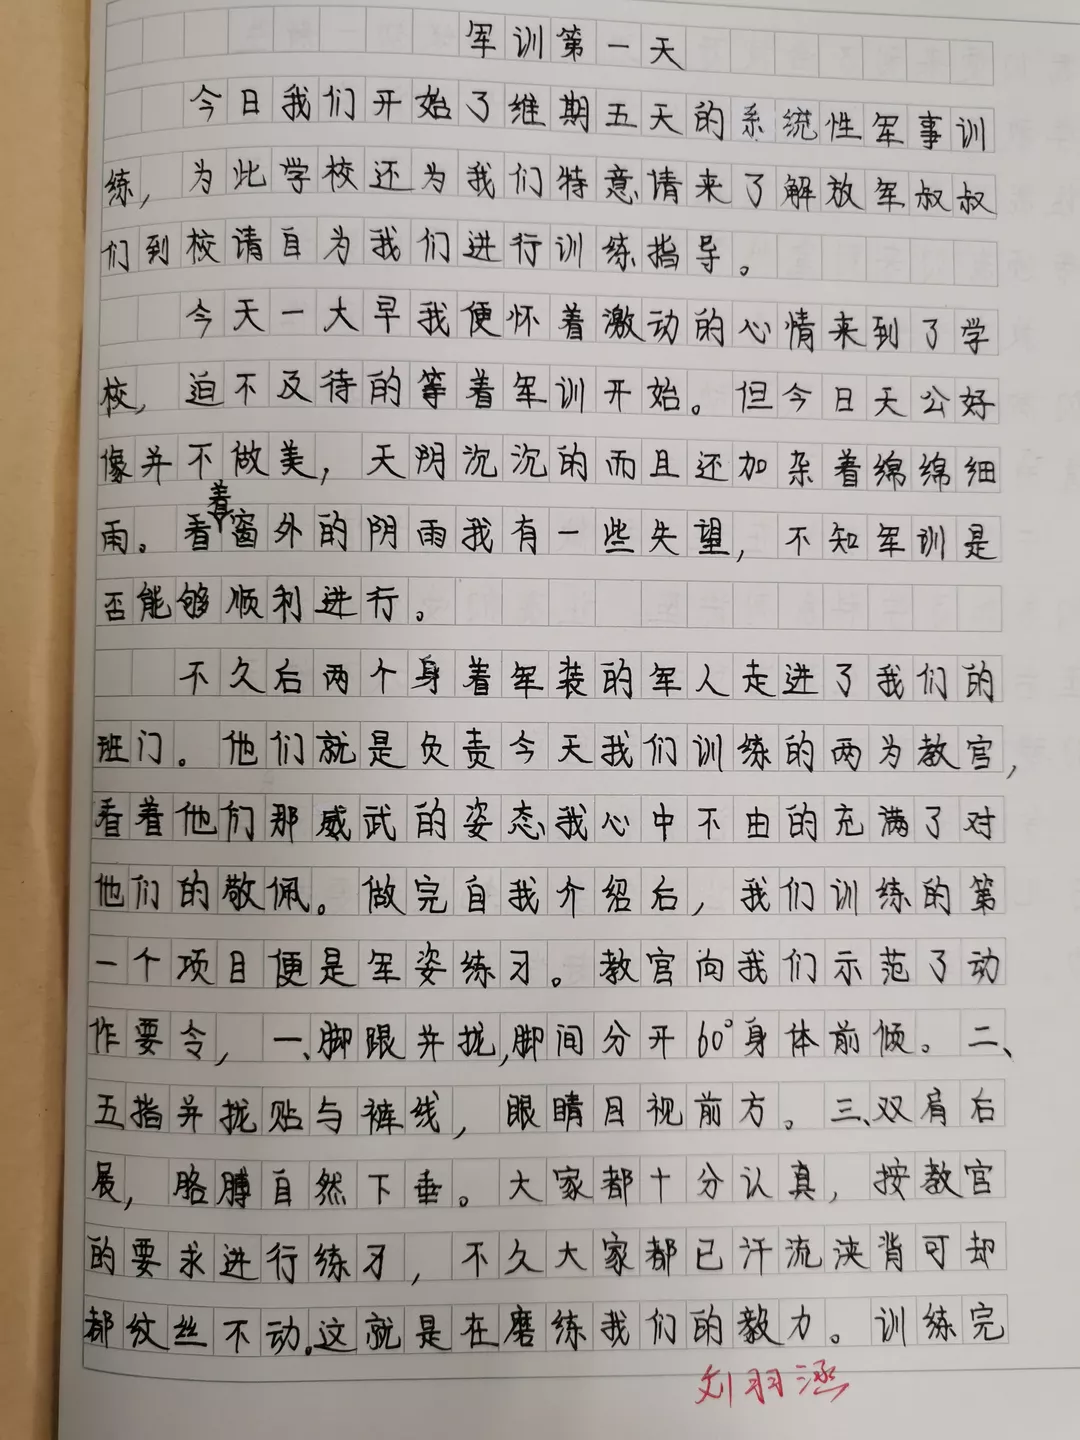 军训第一天
今日我们开始了维期五天的系统性军事训
练，为此学校还为我们特意请来了解放军叔叔
们到校请自为我们进行训练指导。
今天一大早我便怀着激动的心情来到了学
校，迫不及待的等着军训开始。但今日天公好
像并不做美，天阴沉沉的而且还加杂着绵绵细
雨。看着窗外的阴雨我有一些失望，不知军训是
否能够顺利进行。
不久后两个身着军装的军人走进了我们的
班门。他们就是负责今天我们训练的两为教官，
看着他们那威武的姿态我心中不由的充满了对
他们的敬佩。做完自我介绍后，我们训练的第
一个项目便是军姿练习。教官向我们示范了动
作要令，一、脚跟并拢,脚间分开60°身体前倾。二、
五指并拢贴与裤线，眼睛目视前方。三、双肩后
展，胳膊自然下垂。大家都十分认真，按教官
的要求进行练习，不久大家都已汗流浃背可却
都纹丝不动.这就是在磨练我们的毅力。训练完
刘羽涵